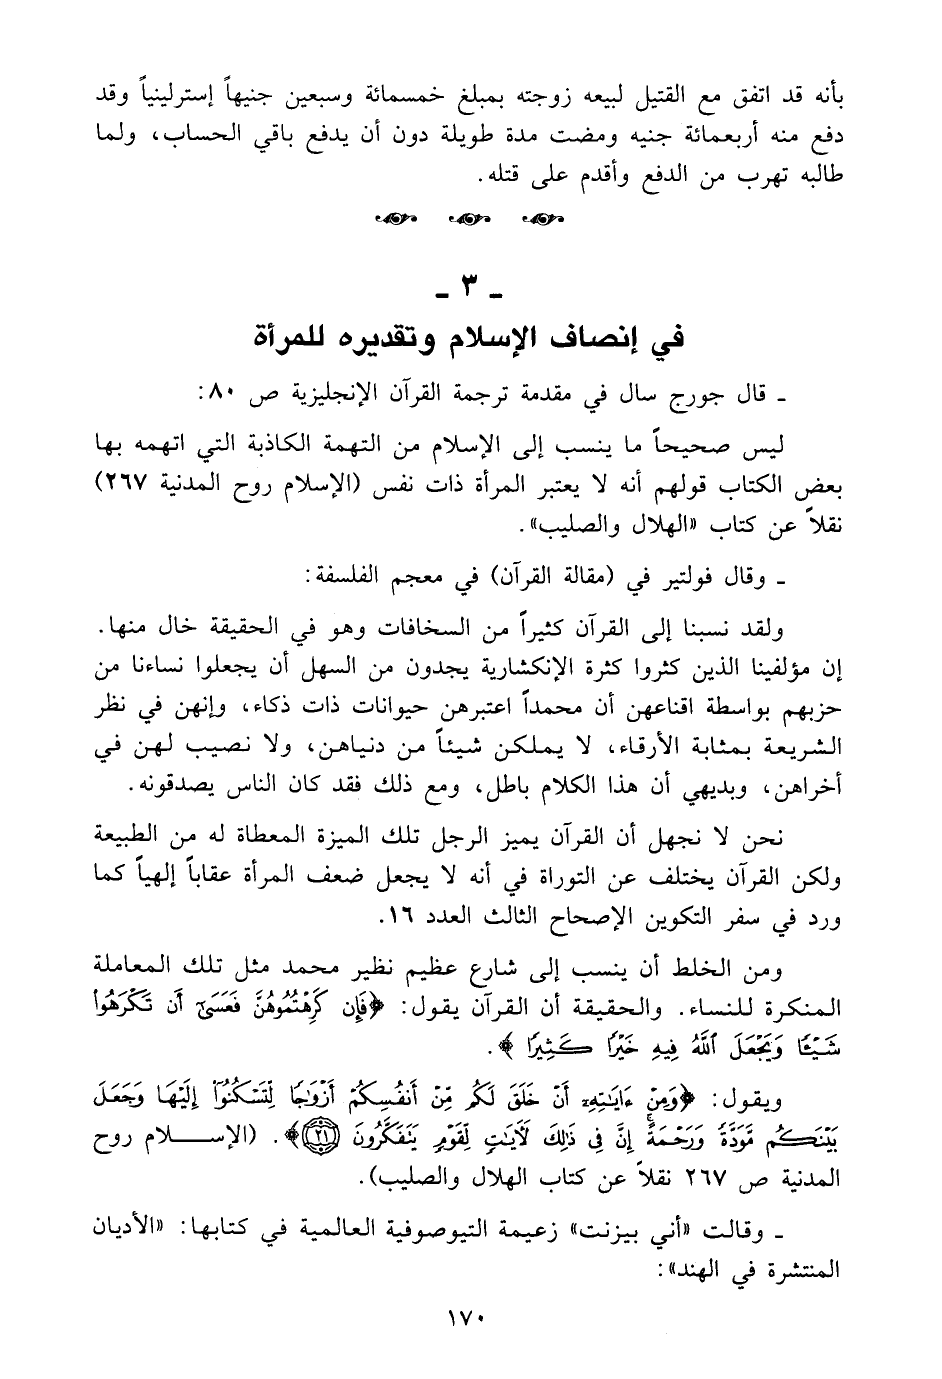 بأنه قد اتفق مع القتيل لبيعه زوجته بمبلغ خمسمائة وسبعين جنيهاً إسترلينياً وقد
دفع منه أربعمائة جنيه ومضت مدة طويلة دون أن يدفع باقي الحساب، ولما
طالبه تهرب من الدفع وأقدم على قتله.
ـ ٣ ـ
في إنصاف الإسلام وتقديره للمرأة
ـ قال جورج سال في مقدمة ترجمة القرآن الإنجليزية ص ٨٠:
ليس صحيحاً ما ينسب إلى الإسلام من التهمة الكاذبة التي اتهمه بها
بعض الكتاب قولهم أنه لا يعتبر المرأة ذات نفس (الإسلام روح المدنية ٢٦٧)
نقلاً عن كتاب «الهلال والصليب».
ـ وقال فولتير في (مقالة القرآن) في معجم الفلسفة:
ولقد نسبنا إلى القرآن كثيراً من السخافات وهو في الحقيقة خال منها.
إن مؤلفينا الذين كثروا كثرة الإنكشارية يجدون من السهل أن يجعلوا نساءنا من
حزبهم بواسطة اقناعهن أن محمداً اعتبرهن حيوانات ذات ذكاء، وإنهن في نظر
الشريعة بمثابة الأرقاء، لا يملكن شيئاً من دنياهن، ولا نصيب لهن في
أخراهن، وبديهي أن هذا الكلام باطل، ومع ذلك فقد كان الناس يصدقونه.
نحن لا نجهل أن القرآن يميز الرجل تلك الميزة المعطاة له من الطبيعة
ولكن القرآن يختلف عن التوراة في أنه لا يجعل ضعف المرأة عقاباً إلهياً كما
ورد في سفر التكوين الإصحاح الثالث العدد ١٦.
ومن الخلط أن ينسب إلى شارع عظيم نظير محمد مثل تلك المعاملة
المنكرة للنساء. والحقيقة أن القرآن يقول: ﴿فَإِن كَرِهْتُمُوهُنَّ فَعَسَىٰٓ أَن تَكْرَهُوا۟
شَيْـًٔا وَيَجْعَلَ ٱللَّهُ فِيهِ خَيْرًا كَثِيرًا﴾.
ويقول: ﴿وَمِنْ ءَايَـٰتِهِۦٓ أَنْ خَلَقَ لَكُم مِّنْ أَنفُسِكُمْ أَزْوَٰجًا لِّتَسْكُنُوٓا۟ إِلَيْهَا وَجَعَلَ
بَيْنَكُم مَّوَدَّةً وَرَحْمَةً ۚ إِنَّ فِى ذَٰلِكَ لَـَٔايَـٰتٍ لِّقَوْمٍ يَتَفَكَّرُونَ ٢١﴾. (الإســـلام روح
المدنية ص ٢٦٧ نقلاً عن كتاب الهلال والصليب).
ـ وقالت «أني بيزنت» زعيمة التيوصوفية العالمية في كتابها: «الأديان
المنتشرة في الهند»:
١٧٠